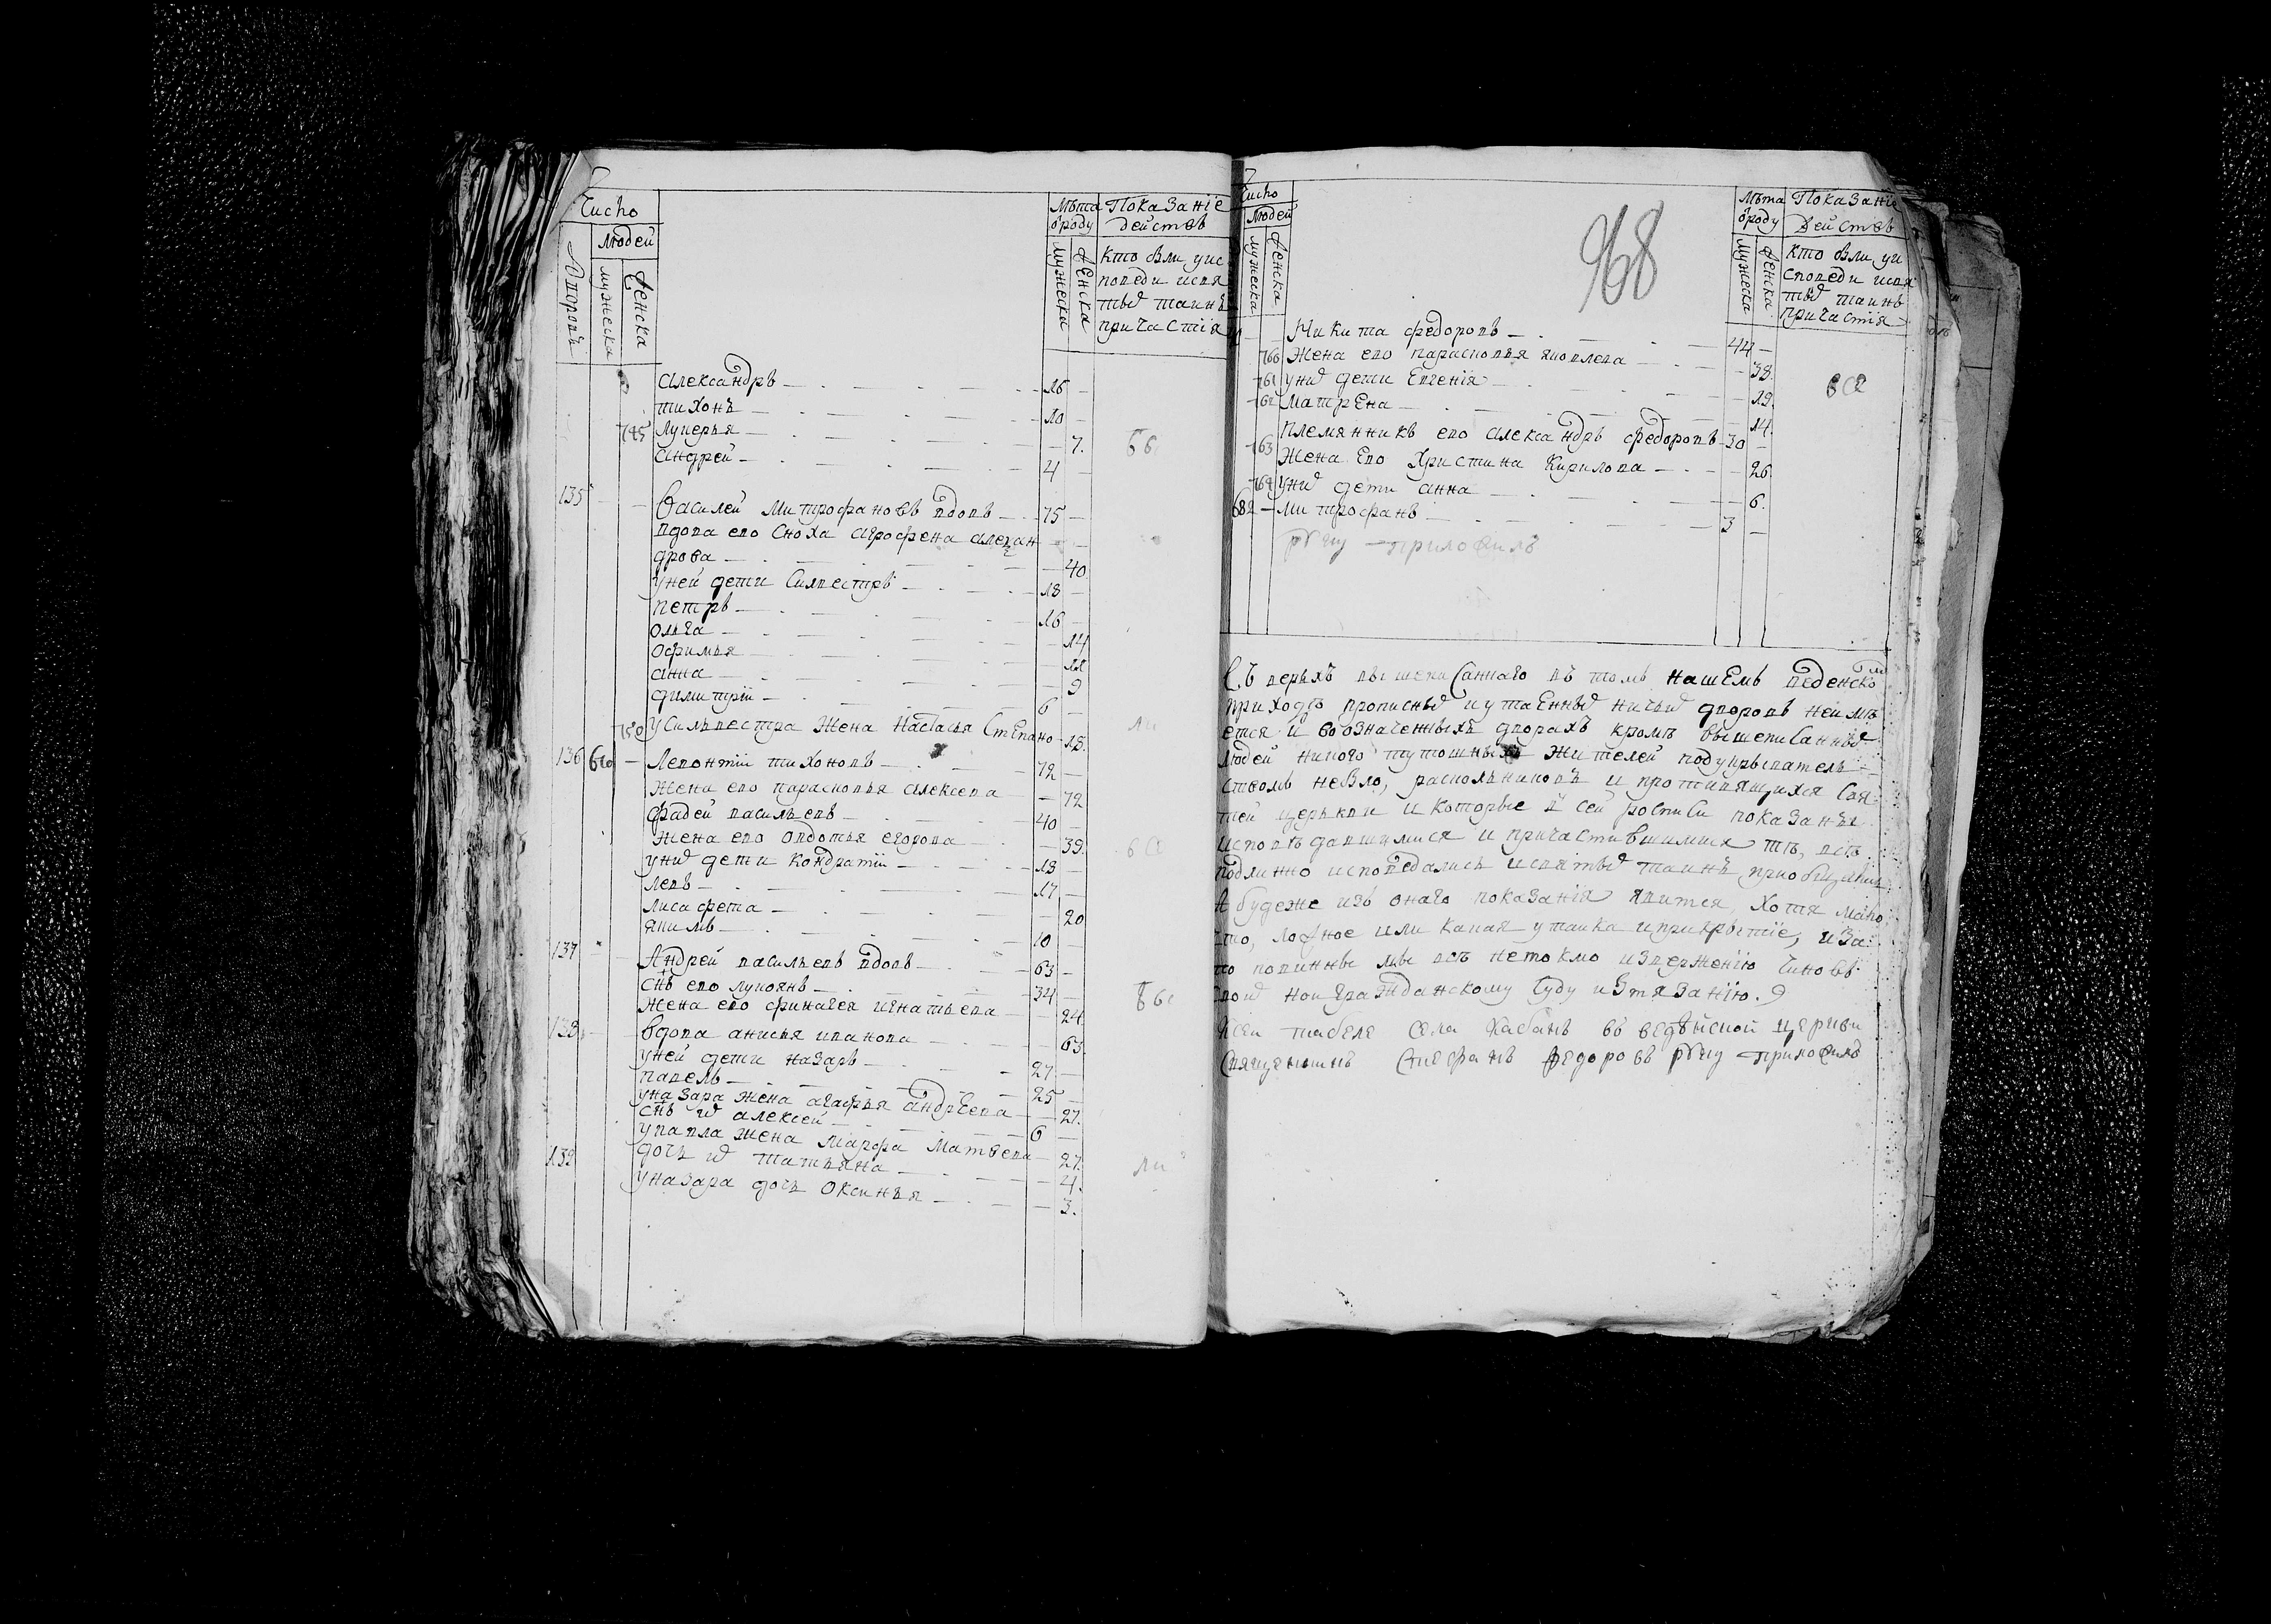 Число
Людей
Дворовъ
мужеска
Женска
Лѣта
ѿроду
мужеска
Женска
Показаніе
действъ
кто был уис
поведи исвя
тыхъ таинъ
причастія
Александръ 16
тихонъ 10
745 Лукерья 7.
Андрей 4
135 Василей Митрофановъ вдовъ 75
вдова его сноха Агрофена Алеѯан
дрова 40
уней дети Силвестръ 18
петръ 16
Олга 14
Офимья 12
анна 9
димитрій 6
750 уСильвестра жена Настасья Степано 18.
136 Левонтій тихоновъ 72
жена его парасковья алексева 72
фадей васильевъ 40
жена его овдотья егорова 39.
уних дети кондратій 18
левъ 17
лисафета 20
якимъ 10
137 Андрей васильевъ вдовъ 63
снъ его лукоянъ 34
жена его финагея игнатьева 24
138 вдова анисья иванова 63.
уней дети назаръ 27
павелъ 25
уназара жена агафья андреева 27.
снъ их алексей 6
упавла жена марфа матвева 27.
139 дочь их татьяна 4.
уназара дочь оксинья 3.
Число
Людей
мужеска
Женска
968
Лѣта
ѿроду
мужеска
Женска
Показаніе
действъ
кто был уи
споведи исвя
тыхъ таинъ
причастія
Никита федоровъ 44
760 жена его парасковья яковлева 38.
761 уних дети Евгенія 19.
762 матрена 14.
племянникъ его александръ федоровъ 30
763 жена его христина кирилова 26.
764 уних дети анна 6.
682 митрофанъ 3
руку приложилъ
вышеписаннаго въ томъ нашемъ введенском
приходѣ прописных иутаенных ничьих дворовъ неимѣ
ется и вовозначенныхъ дворахъ кромѣ вышеписанных
людей никого тутошных жителей подукрывателъ
ствомъ небыло, раскольниковъ и противящихся свя
тей церькви и которые в сей росписи показаны
исповѣдавшимися и причастившимися тѣ, всѣ
подлинно исповедались исвятых таинъ приобщились
А будеже изъ онаго показанія явится, хотя мало
что, ложное или какая утайка иприкрытіе, иза
то повинны мы всѣ нетокмо изверженію чиновъ
своих нои гражданскому суду истязанію.
ксей табеле села кабанъ введѣнской церкви
священникъ Стефанъ Федоровъ руку приложилъ